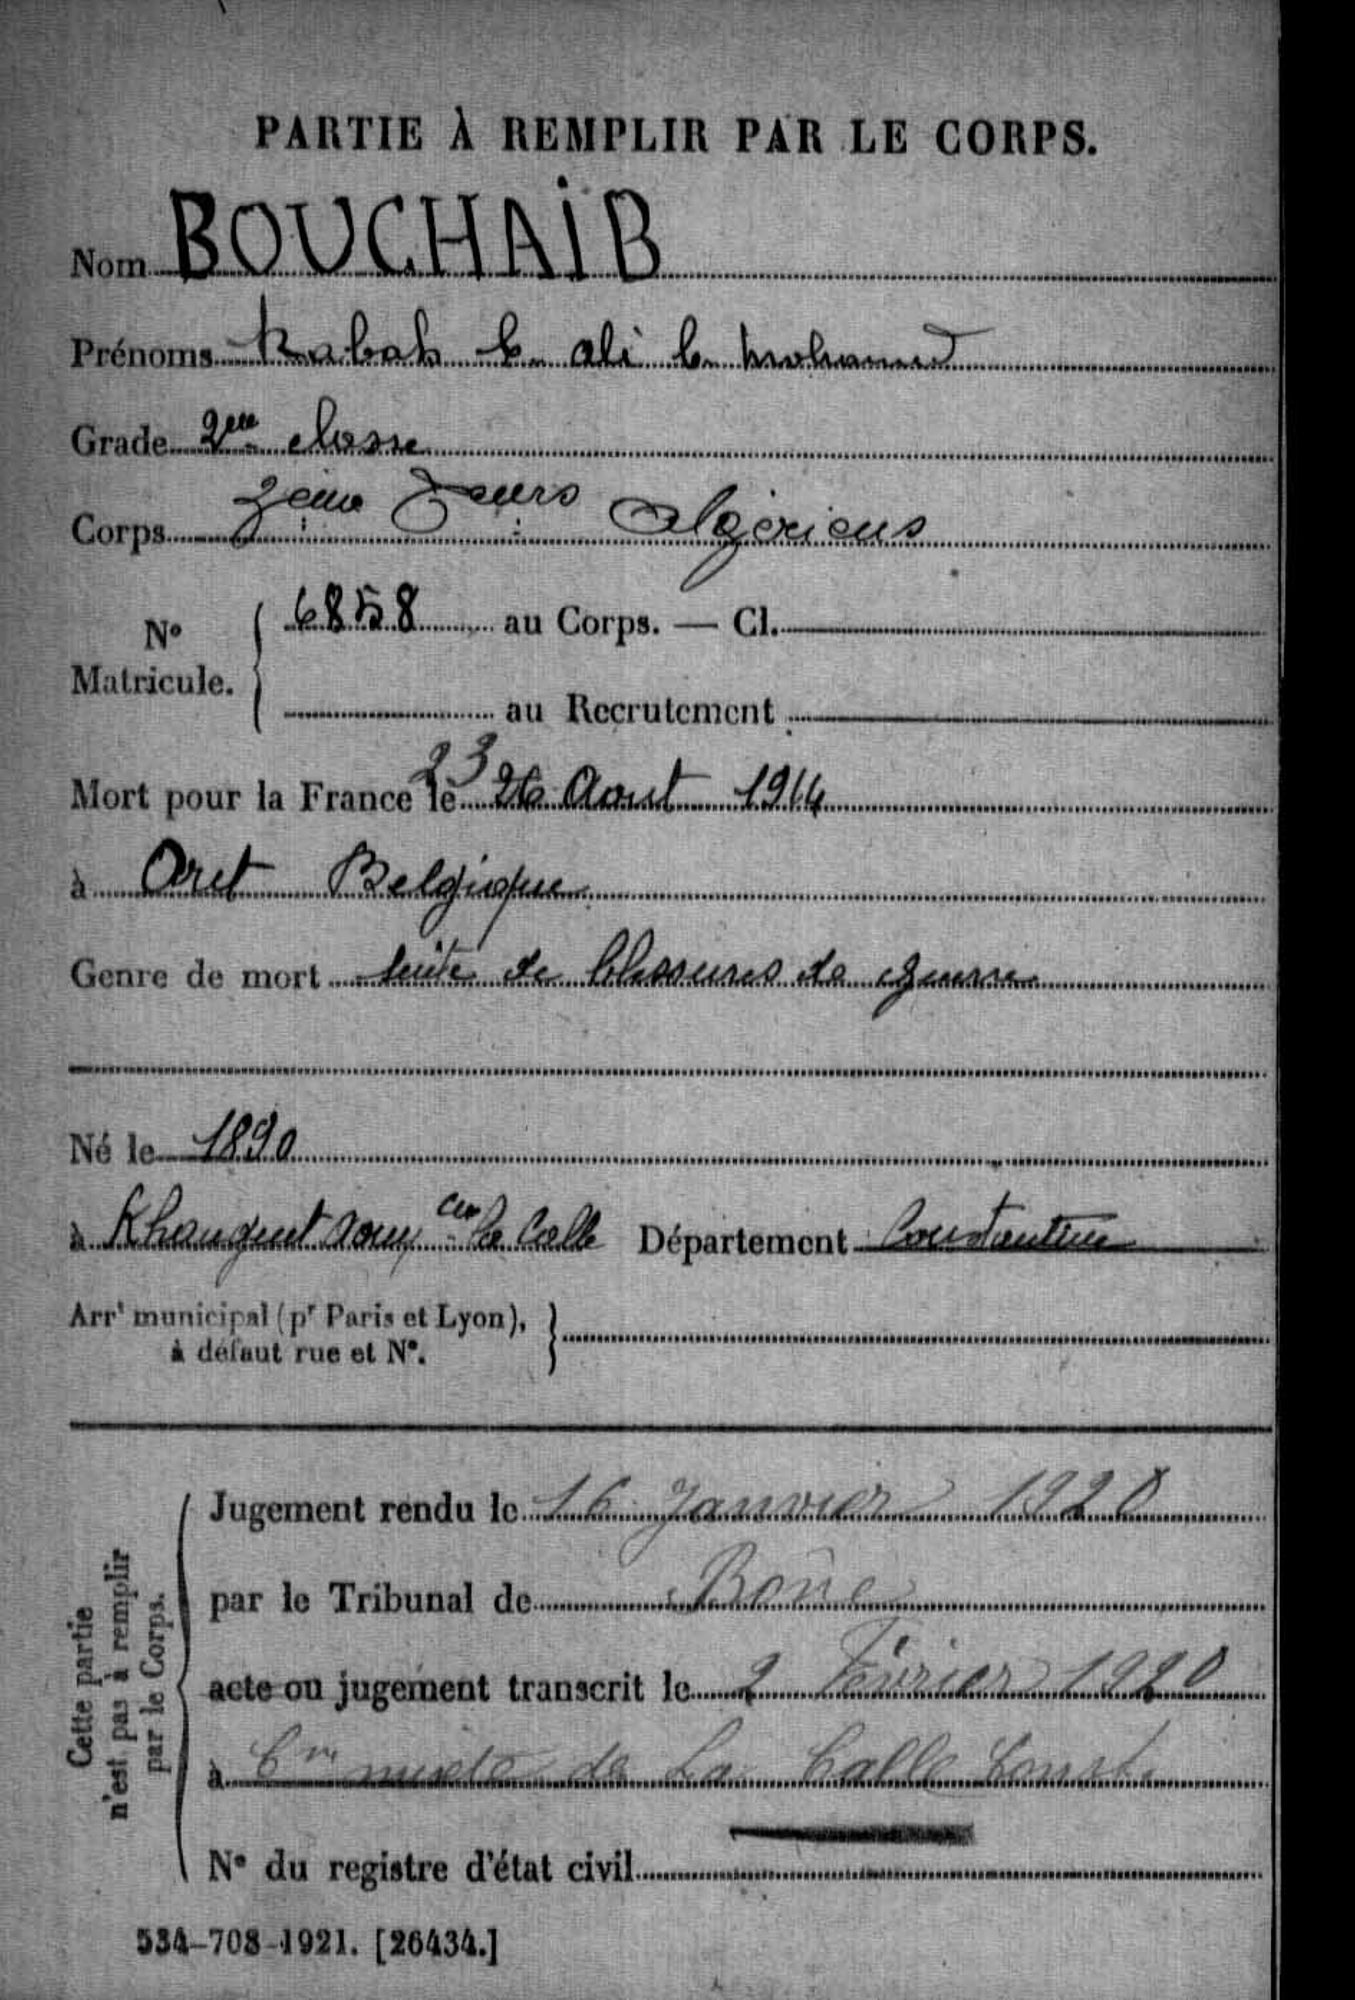 PARTIE À REMPLIR PAR LE CORPS.
Nom BOUCHAÏB
Prénoms Rabah b. ali b. mohamed
Grade 2me classe
Corps 3eme Tirailleurs Algériens
N° Matricule. 6858 au Corps. — Cl.
au Recrutement
Mort pour la France le 23 26 Aout 1914
à Oret Belgique
Genre de mort suite de blessures de guerre
Né le 1890
à Khanguet aoun Cne La Calle Département Constantine
Arrt municipal (pr Paris et Lyon),
à défaut rue et N°.
Cette partie
n'est pas à remplir
par le Corps.
Jugement rendu le 16 Janvier 1920
par le Tribunal de Bône
acte ou jugement transcrit le 2 Février 1920
à Cne mixte de La Calle Const.
N° du registre d'état civil
534-708-1921. [26434.]